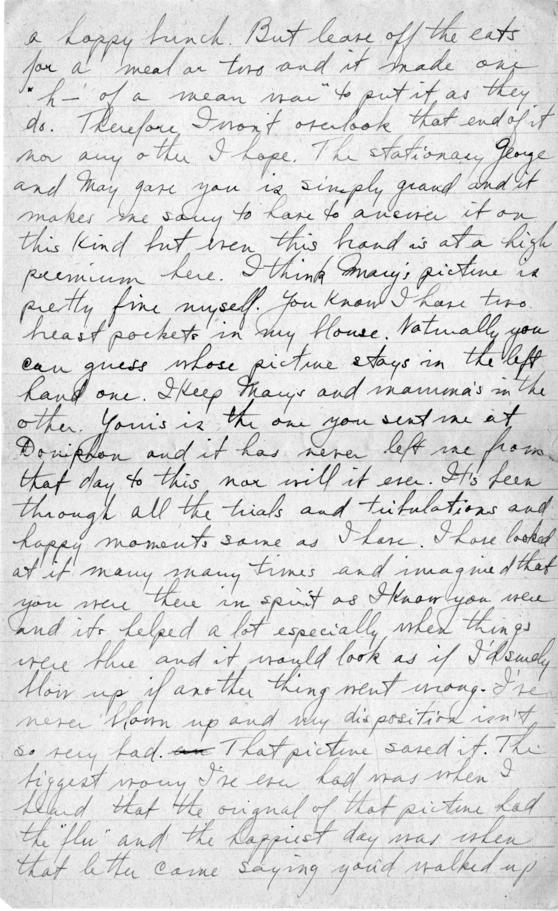 a happy bunch. But leave off the eats
for a meal or two and it made one
"h— of a mean war" to put it as they
do. Therefore I won't overlook that end of it
nor any other I hope. The stationary George
and May gave you is simply grand and it
makes me sorry to have to answer it on
this kind but even this brand is at a high
premium here. I think Mary's picture is
pretty fine myself. You know I have two
breast pockets in my blouse. Naturally you
can guess whose picture stays in the left
hand one. I keep Marys and mamma's in the
other. Yours is the one you sent me at
Doniphan and it has never left me from
that day to this nor will it ever. It's been
through all the trials and tribulations and
happy moments same as I have. I have looked
at it many many times and imagined that
you were there in spirit as I know you were
and it's helped a lot especially when things
were blue and it would look as if I'd surely
blow up if another thing went wrong. I've
never blown up and my disposition isn't
so very bad. That picture saved it. The
biggest worry I've ever had was when I
heard that the orignal of that picture had
the "flu" and the happiest day was when
that letter came saying you'd walked up